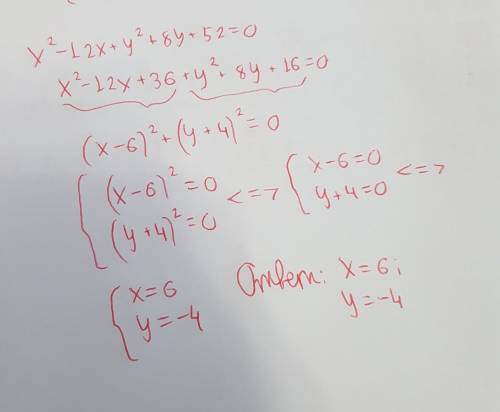 x² - 12x + y² + 8y + 52 = 0
x² - 12x + 36 + y² + 8y + 16 = 0
(x - 6)² + (y + 4)² = 0
{ (x - 6)² = 0 <=> { x - 6 = 0 <=>
(y + 4)² = 0 y + 4 = 0
{ x = 6 Ответ: x = 6;
y = -4 y = -4